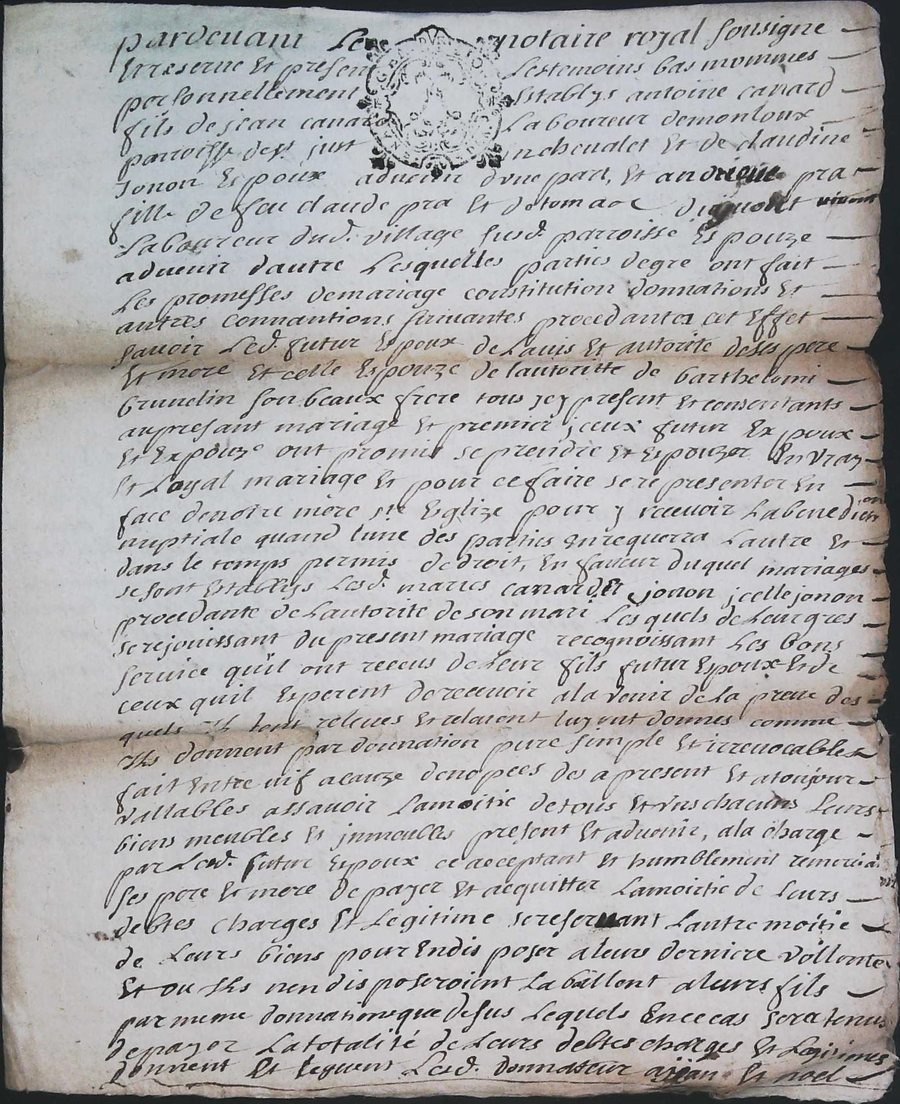 pardeuant Le notaire royal sousigne
Et reserue Et present Les temoins bas nommes
personnellement Establys antoine canard
fils de jean canard Laboureur demonloux
parroisse de st just en cheualet Et de claudine
Jonon Espoux aduenir d'une part, Et andrieue pra
fille de feu claude pra Et de tomaoe uiuant
Laboureur dud. village susd. parroisse Espouze
aduenir dautre Lesquelles parties degre ont fait
Les promesses demariage constitution donnations Et
autres conuantions suiuantes procedantes a cet Effet
sauoir Led. futur Espoux de Lauis Et autorité deses pere
Et mere Et celle Espouze de lautoritte de barthelemi
brunelin son beaux frere tous jcy present Et consentants
aupresant mariage Et premier jceux futur Expoux
Et Expouze ont promis se prendre Et Espouzer En vray
Et Loyal mariage Et pour ce faire se representer En
face denotre mere ste Eglize pour y receuoir Labenediction
nuptiale quand lune des parties En requerra Lautre Et
dans le temps permis de droit, En faueur duquel mariages
se sont Establys Lesd. maries canard Et jonon jcelle jonon
procedante de Lautorité de son mari Lesquels de Leur gres
serejouissant du present mariage recognoissant Les bons
seruice quil ont receus de Leur fils futur Espoux Et de
ceux quil Esperent dereceuoir ala venir de la preuue des
quels ils Lont releues Et releuent luy ont donnes comme
Ils donnent par donnation pure simple Et irreuocables
fait Entre uif acauze denopces des a present Et atoujour
vallables assauoir Lamoitie de tous Et uns chacuns Leurs
biens meubles Et jmmeubles present Et aduenir, ala charge
par Led. futur Espoux ce acceptant Et humblement remercia
ses pere Et mere de payer Et acquitter Lamoitie de Leurs
debtes charges Et Legitime sereseruant Lautre moitie
de Leurs biens pour En disposer aleurs derniere vollonte
Et ou Ils nen disposeroient La baillent aleurs fils
par meme donnation que desus Lequels En ce cas sera tenus
depayer La totalité de Leurs debtes charges Et Legitimes
donnent Et Leguent Lesd. donnateur a jean Et noel